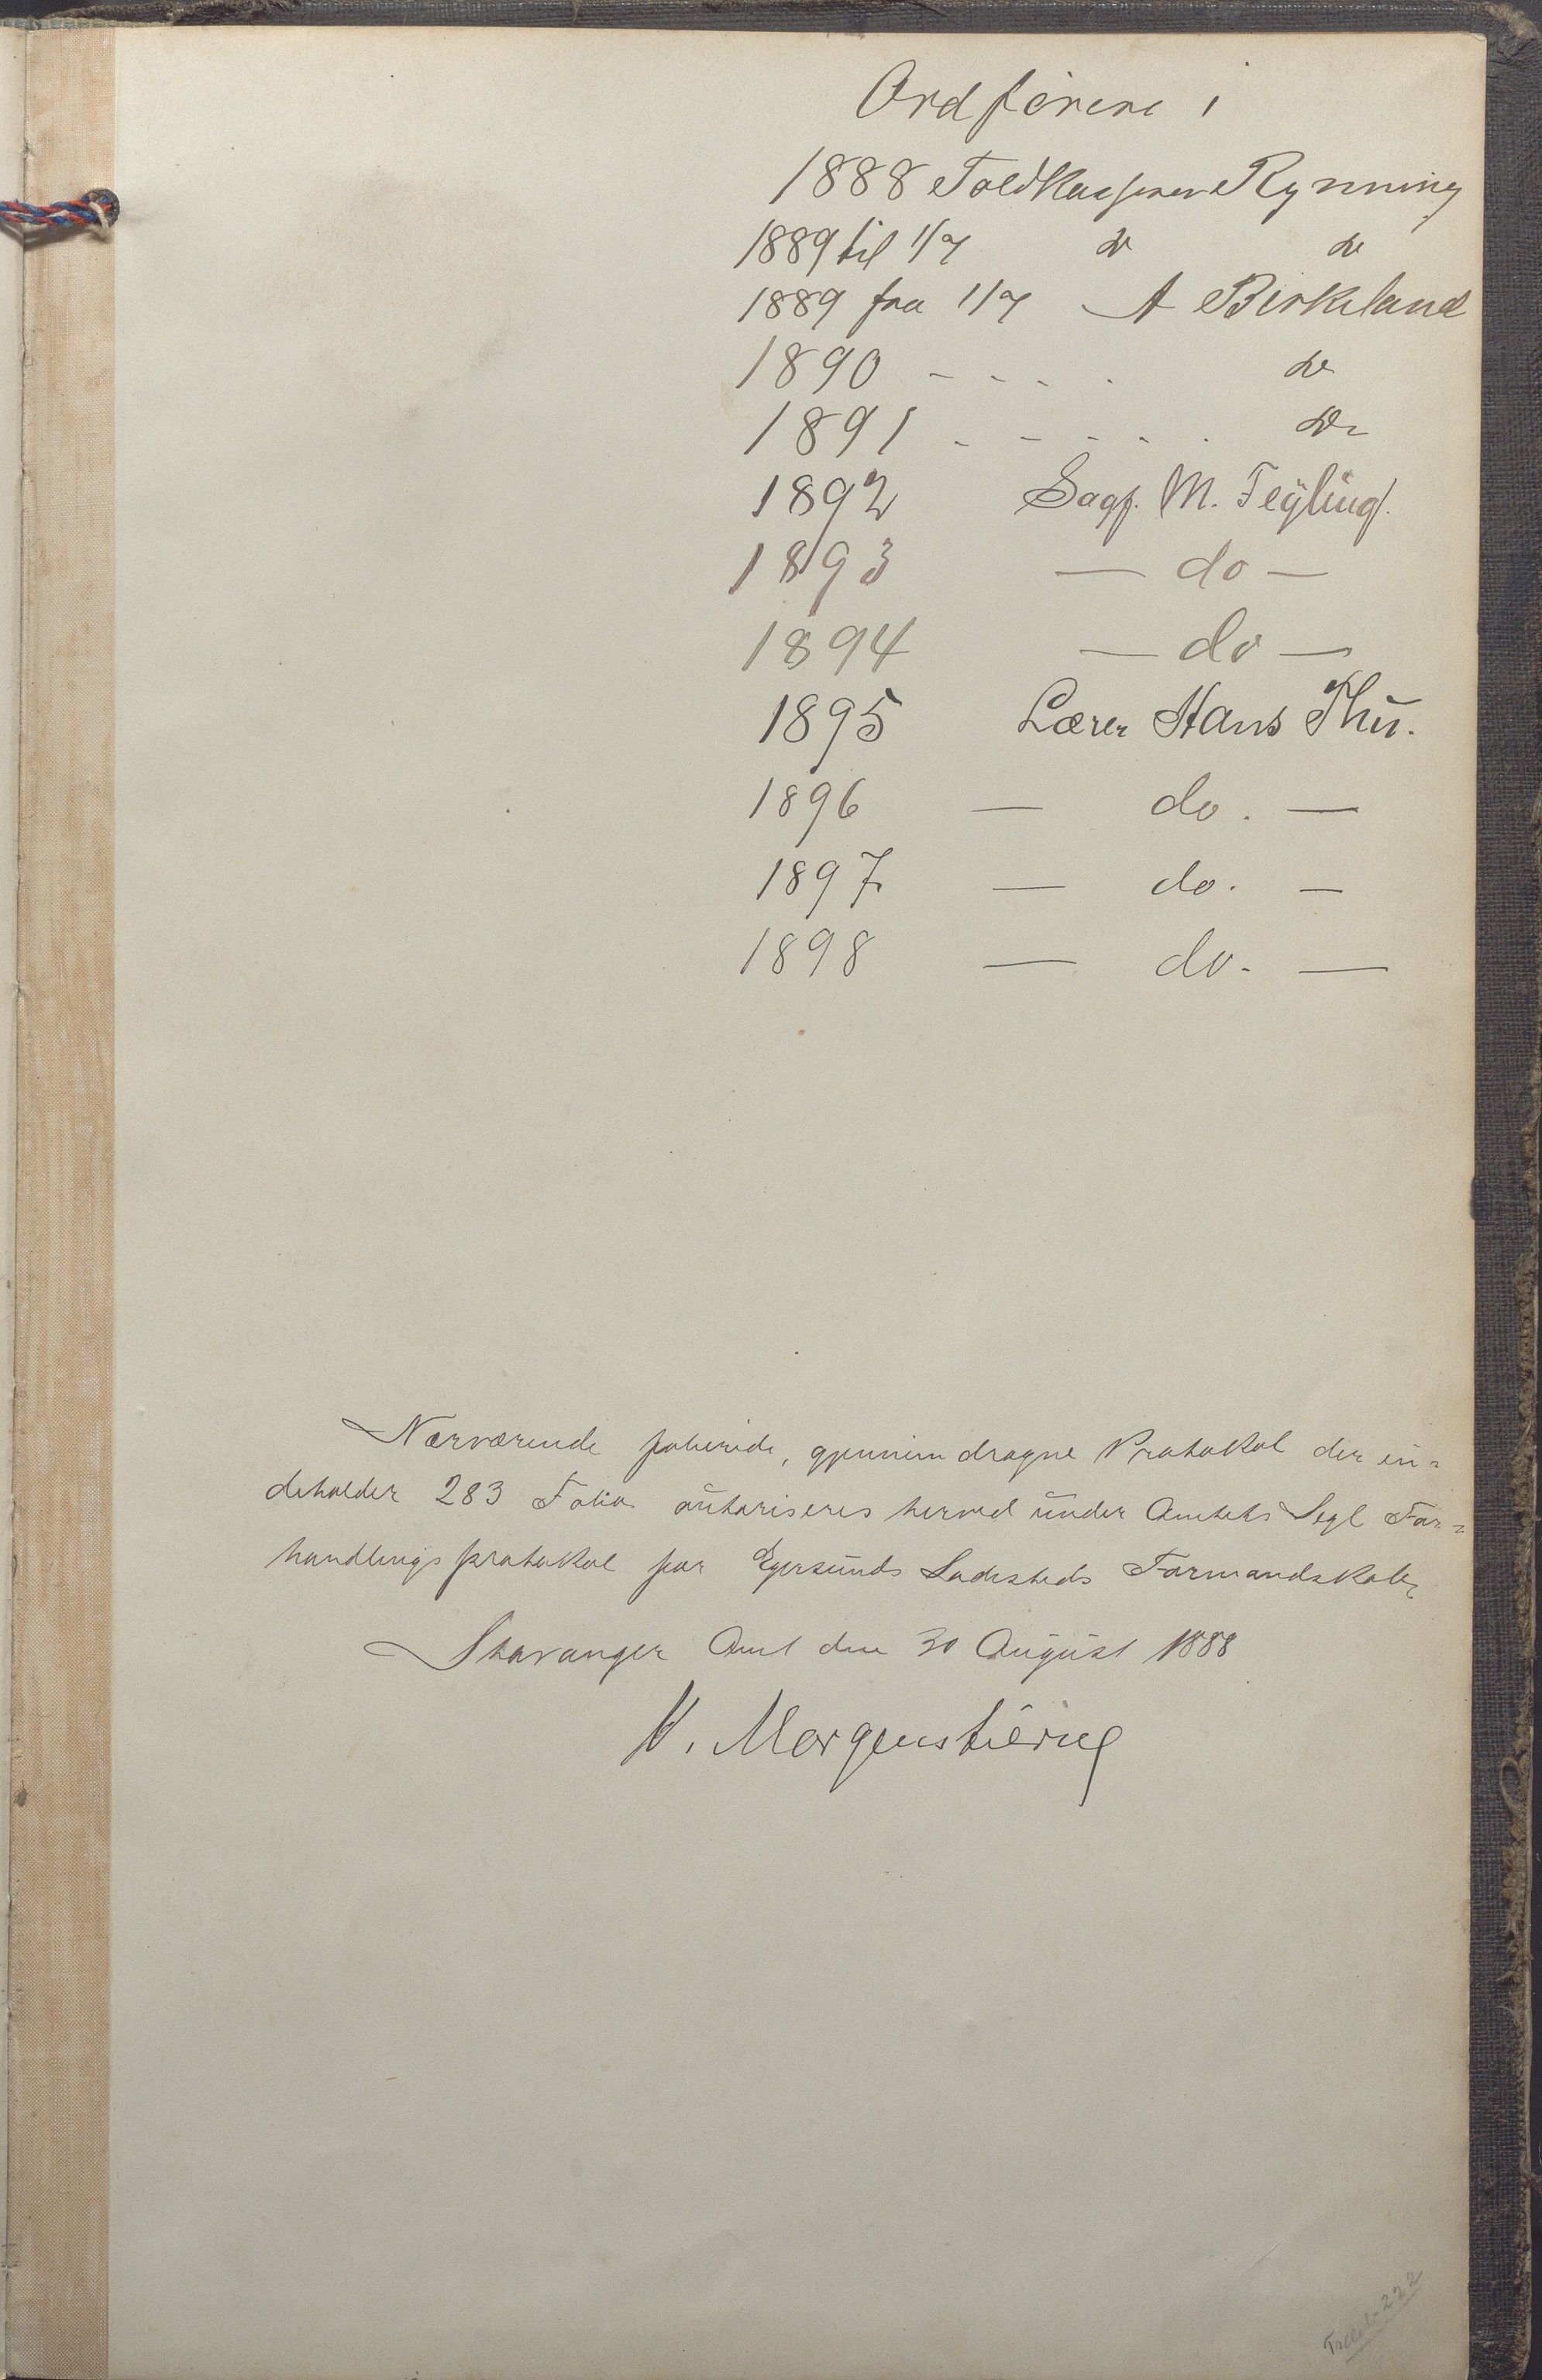 Ordförere i
1888 Toldkasserer Rynning
1889 til 1/7 do do
1889 fra 1/7 A Birkeland
1890 - - - - do
1891 - - - - - do
1892 Sagf. M. Feyling.
1893 — do —
1894 — do —
1895 Lærer Hans Thu.
1896 — do. —
1897 — do. —
1898 — do. —
Nærværende folierede, gjennemdragne Protokol der in=
deholder 283 Folier autoriseres herved under Amtets Segl For=
handlingsprotokol for Egersunds Ladesteds Formandskab,
Stavanger Amt den 30 August 1888
V. Morgenstierne
222